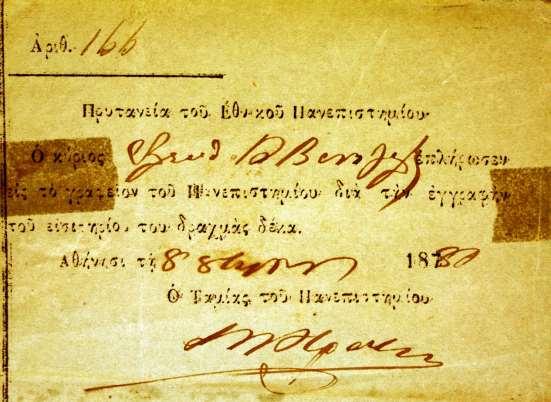 Ἀριθ. 166
Πρυτανεία τοῦ Ἐθνικοῦ Πανεπιστημίου
Ὁ κύριος ἐπλήρωσεν
εἰς τὸ γραφεῖον τοῦ Πανεπιστημίου διὰ τὴν ἐγγραφὴν
τοῦ εἰσιτηρίου του δραχμὰς δέκα.
Ἀθήνησι τῇ 8 1880
Ὁ Ταμίας τοῦ Πανεπιστημίου